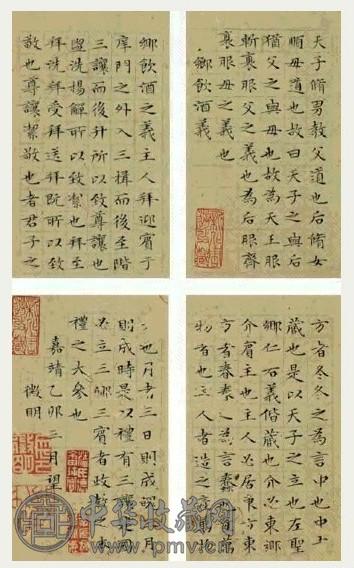 天子脩男教父道也后脩女
順母道也故曰天子之與后
猶父之與母也故為天王服
斬衰服父之義也為后服齊
衰服母之義也
鄉飲酒義
鄉飲酒之義主人拜迎賓于
庠門之外入三揖而後至階
三讓而後升所以致尊讓也
盥洗揚觶所以致絜也拜至
拜洗拜受拜送拜既所以致
敬也尊讓絜敬也者君子之
方者冬冬之為言中也中
藏也是以天子之立也左聖
鄉仁右義偝藏也介必東鄉
介賓主也主人必居東方東
方者春春之為言蠢也產萬
物者也主人者造之產萬物
也月者三日則成魄三月
則成時是以禮有三讓建國
必立三卿三賓者政教之本
禮之大參也
嘉靖乙卯三月望
徵明
中华收藏网
www.ipmv.cn